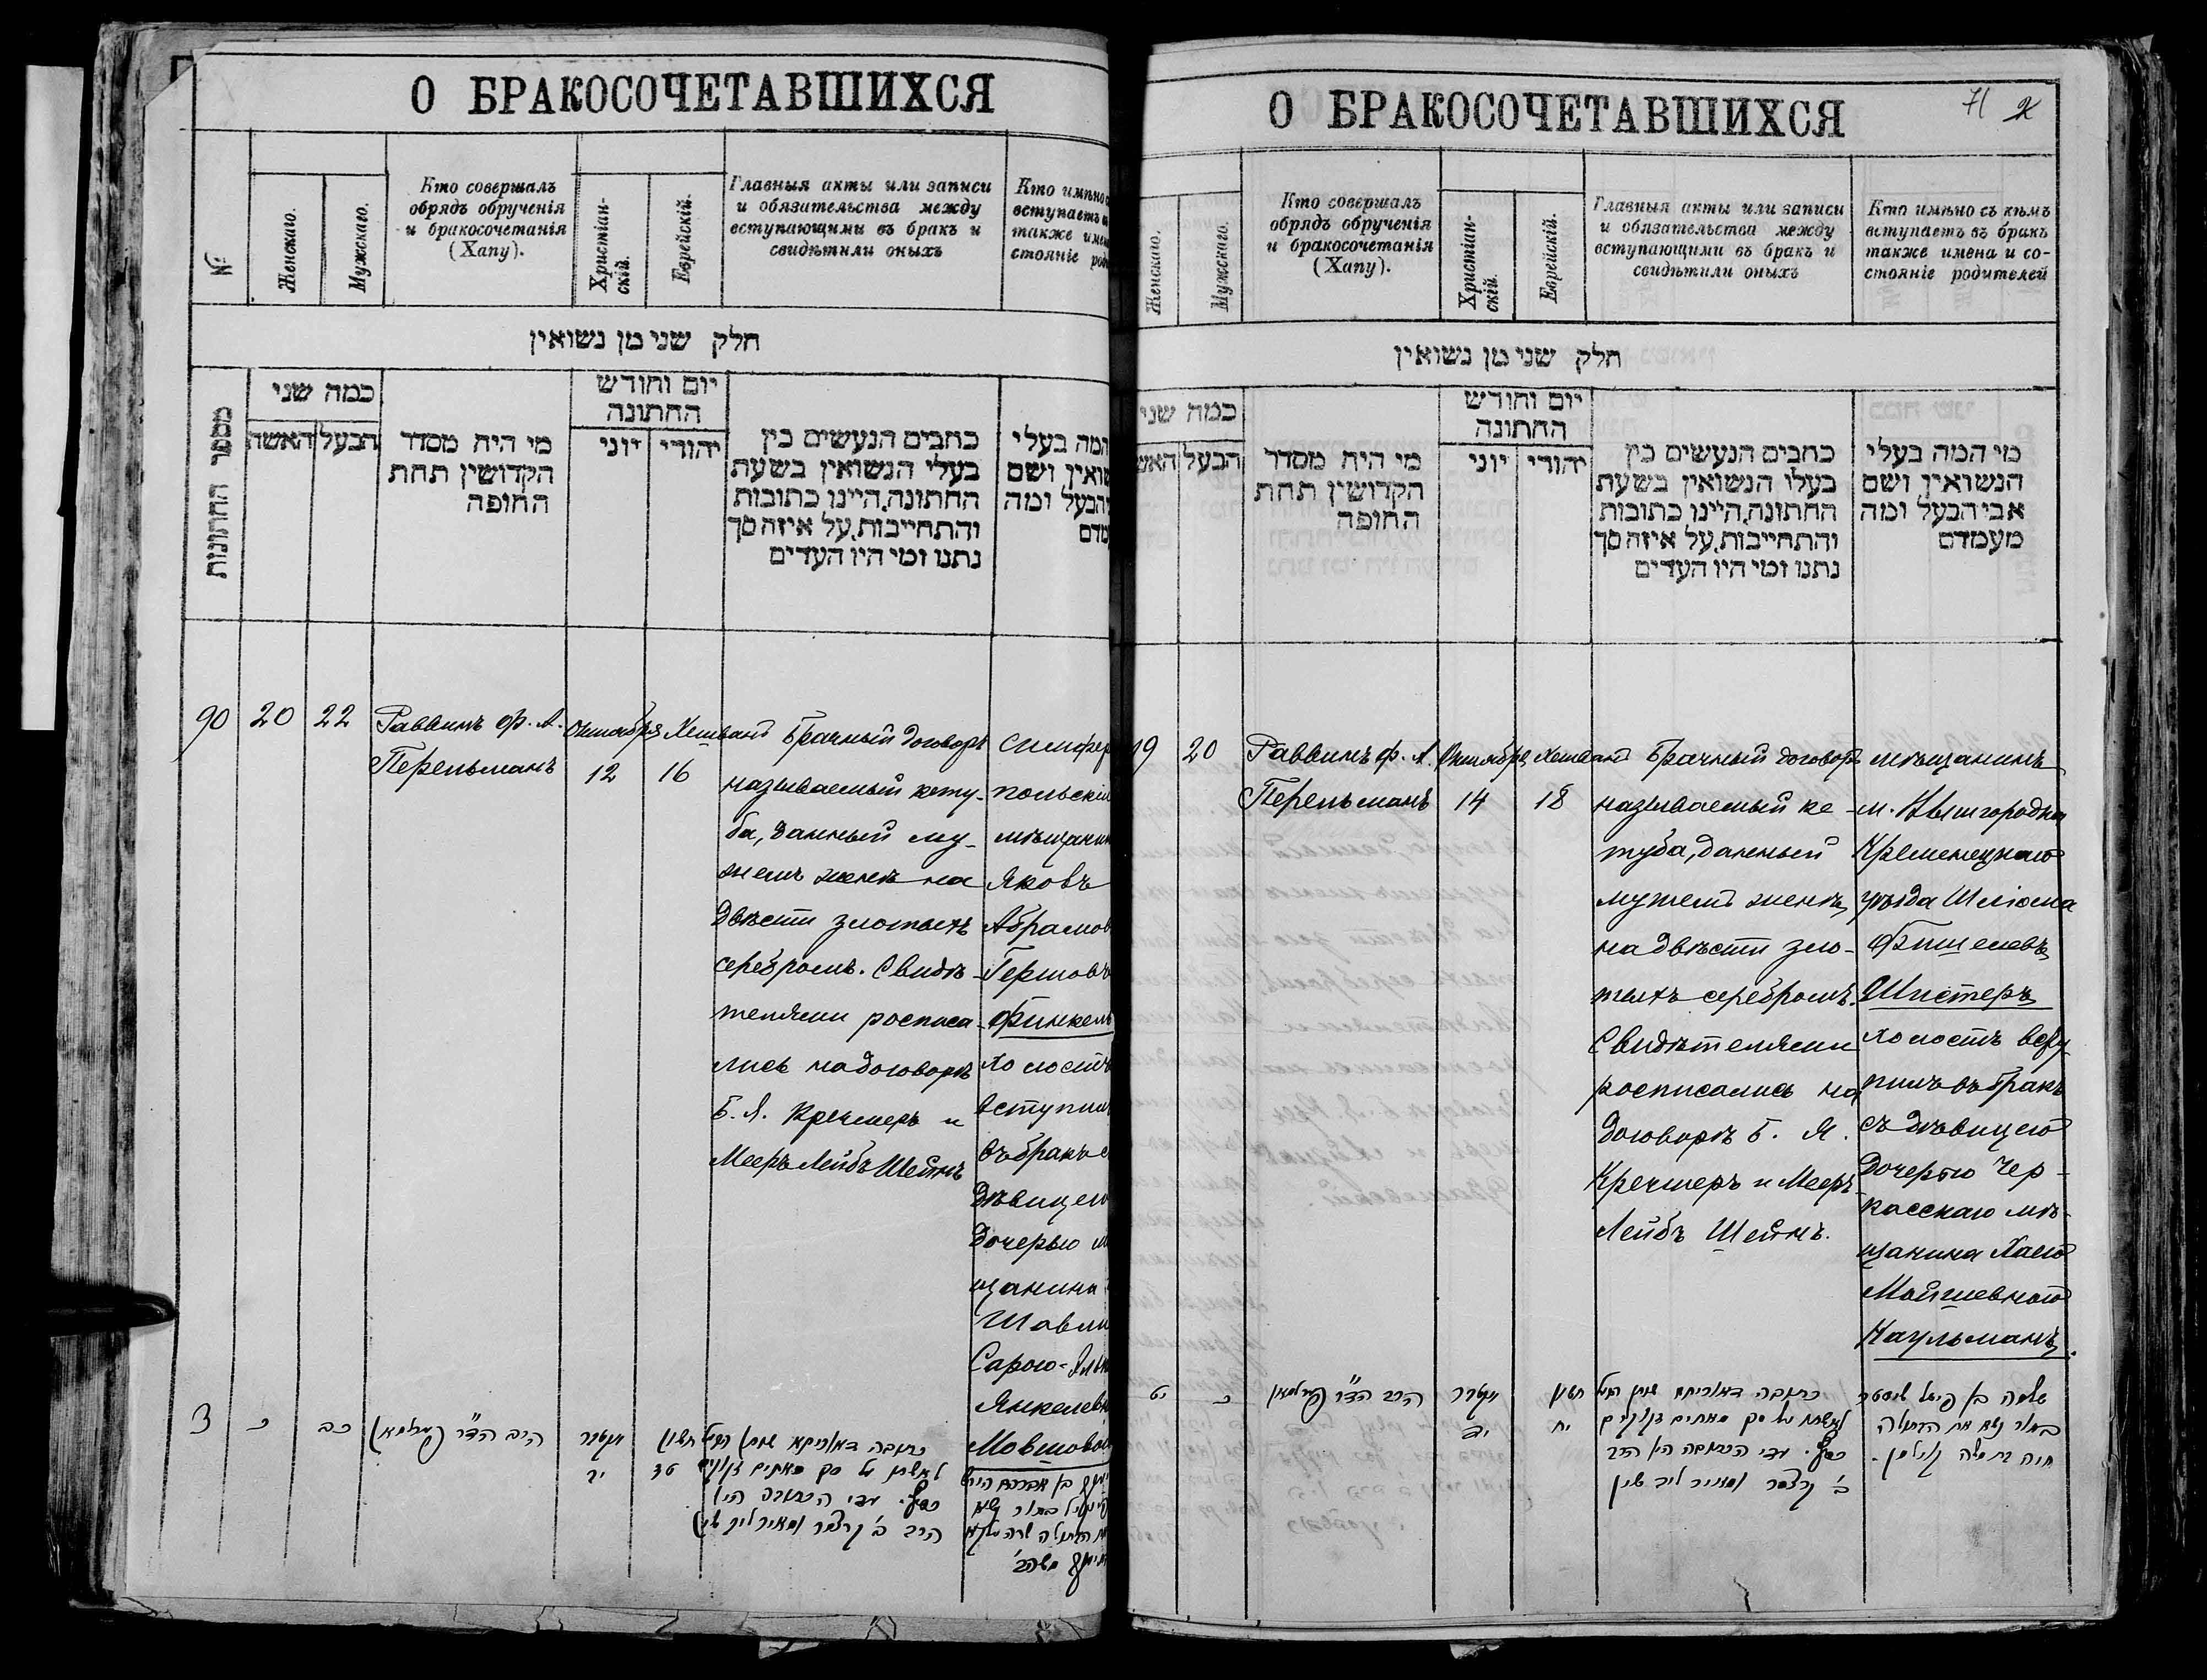 О БРАКОСОЧЕТАВШИХСЯ
№
Женскаго.
Мужскаго.
Кто совершалъ
обрядъ обрученія
и бракосочетанія
(Хапу).
Христіан-
скій.
Еврейскій.
Главныя акты или записи
и обязательства между
вступающими въ бракъ и
свидѣтили оныхъ
Кто имѣно
вступаетъ
также
стояніе
חלק שני מן נשואין
מספר החתונות
כמה שני
האשה
הבעל
מי היה מסדר
הקדושין תחת
החופה
יום וחודש
החתונה
יוני
יהודי
כתבים הנעשים בין
בעלי הנשואין בשעת
החתונה, היינו כתובות
והתחייבות, על איזה סך
נתנו ומי היו העדים
המה בעלי
ושם
הבעל ומה
90 20 22
Раввинъ Ф. А.
Перельманъ
Октября
12
Хешванъ
16
Брачный договоръ
называемый кету-
ба, данный му-
жемъ женѣ на
двѣсти злотыхъ
серебромъ. Свидѣ-
телями росписа-
лись на договорѣ
Б. Я. Кречмеръ и
Мееръ Лейбъ Шейнъ
Симфер
польскій
мѣщанин
Яковъ
Абрамов
Гершовъ
Финкель
холостъ
вступил
въ бракъ с
дѣвицею
дочерью м
щанина
Шавли
Сарою-
Янкелев
Мовшово
כ
כב
הרב הד״ר פערלמאן
אקטבר
יב
חשון
טז
כתובה דאוריתא שנתן הבעל
לאשתו על סך מאתים זקוקים
כסף. עדי הכתובה היו
הרב ב׳ קרצמר ומאיר ליב שיין
О БРАКОСОЧЕТАВШИХСЯ
71
Женскаго.
Мужскаго.
Кто совершалъ
обрядъ обрученія
и бракосочетанія
(Хапу).
Христіан-
скій.
Еврейскій.
Главныя акты или записи
и обязательства между
вступающими въ бракъ и
свидѣтили оныхъ
Кто имѣно съ кѣмъ
вступаетъ въ бракъ
также имена и со-
стояніе родителей
חלק שני מן נשואין
כמה שני
האש
הבעל
מי היה מסדר
הקדושין תחת
החופה
יום וחודש
החתונה
יוני
יהודי
כתבים הנעשים בין
בעלו הנשואין בשעת
החתונה, היינו כתובות
והתחייבות, על איזה סך
נתנו ומי היו העדים
מי המה בעלי
הנשואין ושם
אבי הבעל ומה
מעמדם
19 20
Раввинъ Ф. А.
Перельманъ
Октября
14
Хешванъ
18
Брачный договоръ
называемый ке-
туба, данный
мужемъ женѣ
на двѣсти зло-
тыхъ серебромъ.
Свидѣтелями
росписались на
договорѣ Б. Я.
Кречмеръ и Мееръ-
Лейбъ Шейнъ.
мѣщанинъ
м. Вышгородка
Кременецкаго
уѣзда Шліома
Фишелевъ
Шистеръ
холостъ всту-
пилъ въ бракъ
съ дѣвицею
дочерью Чер-
касскаго мѣ-
щанина Хаею
Мойшевною
Каульманъ.
יט
כ
הרב הד״ר פערלמאן
אקטבר
יד
חשון
יח
כתובה דאוריתא שנתן הבעל
לאשתו על סך מאתים זקוקים
כסף. עדי הכתובה היו הרב
ב׳ קרצמר ומאיר ליב שיין
שלמה בן פישל שיסטר
בחור נשא את הבתולה
חיה בת משה קוילמן.